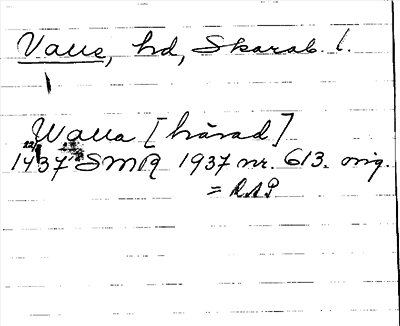 Valle, hd, Skarab. l.
Walla [härad]
1437 22/1 SMR 1937 nr. 613. orig.
= RAP